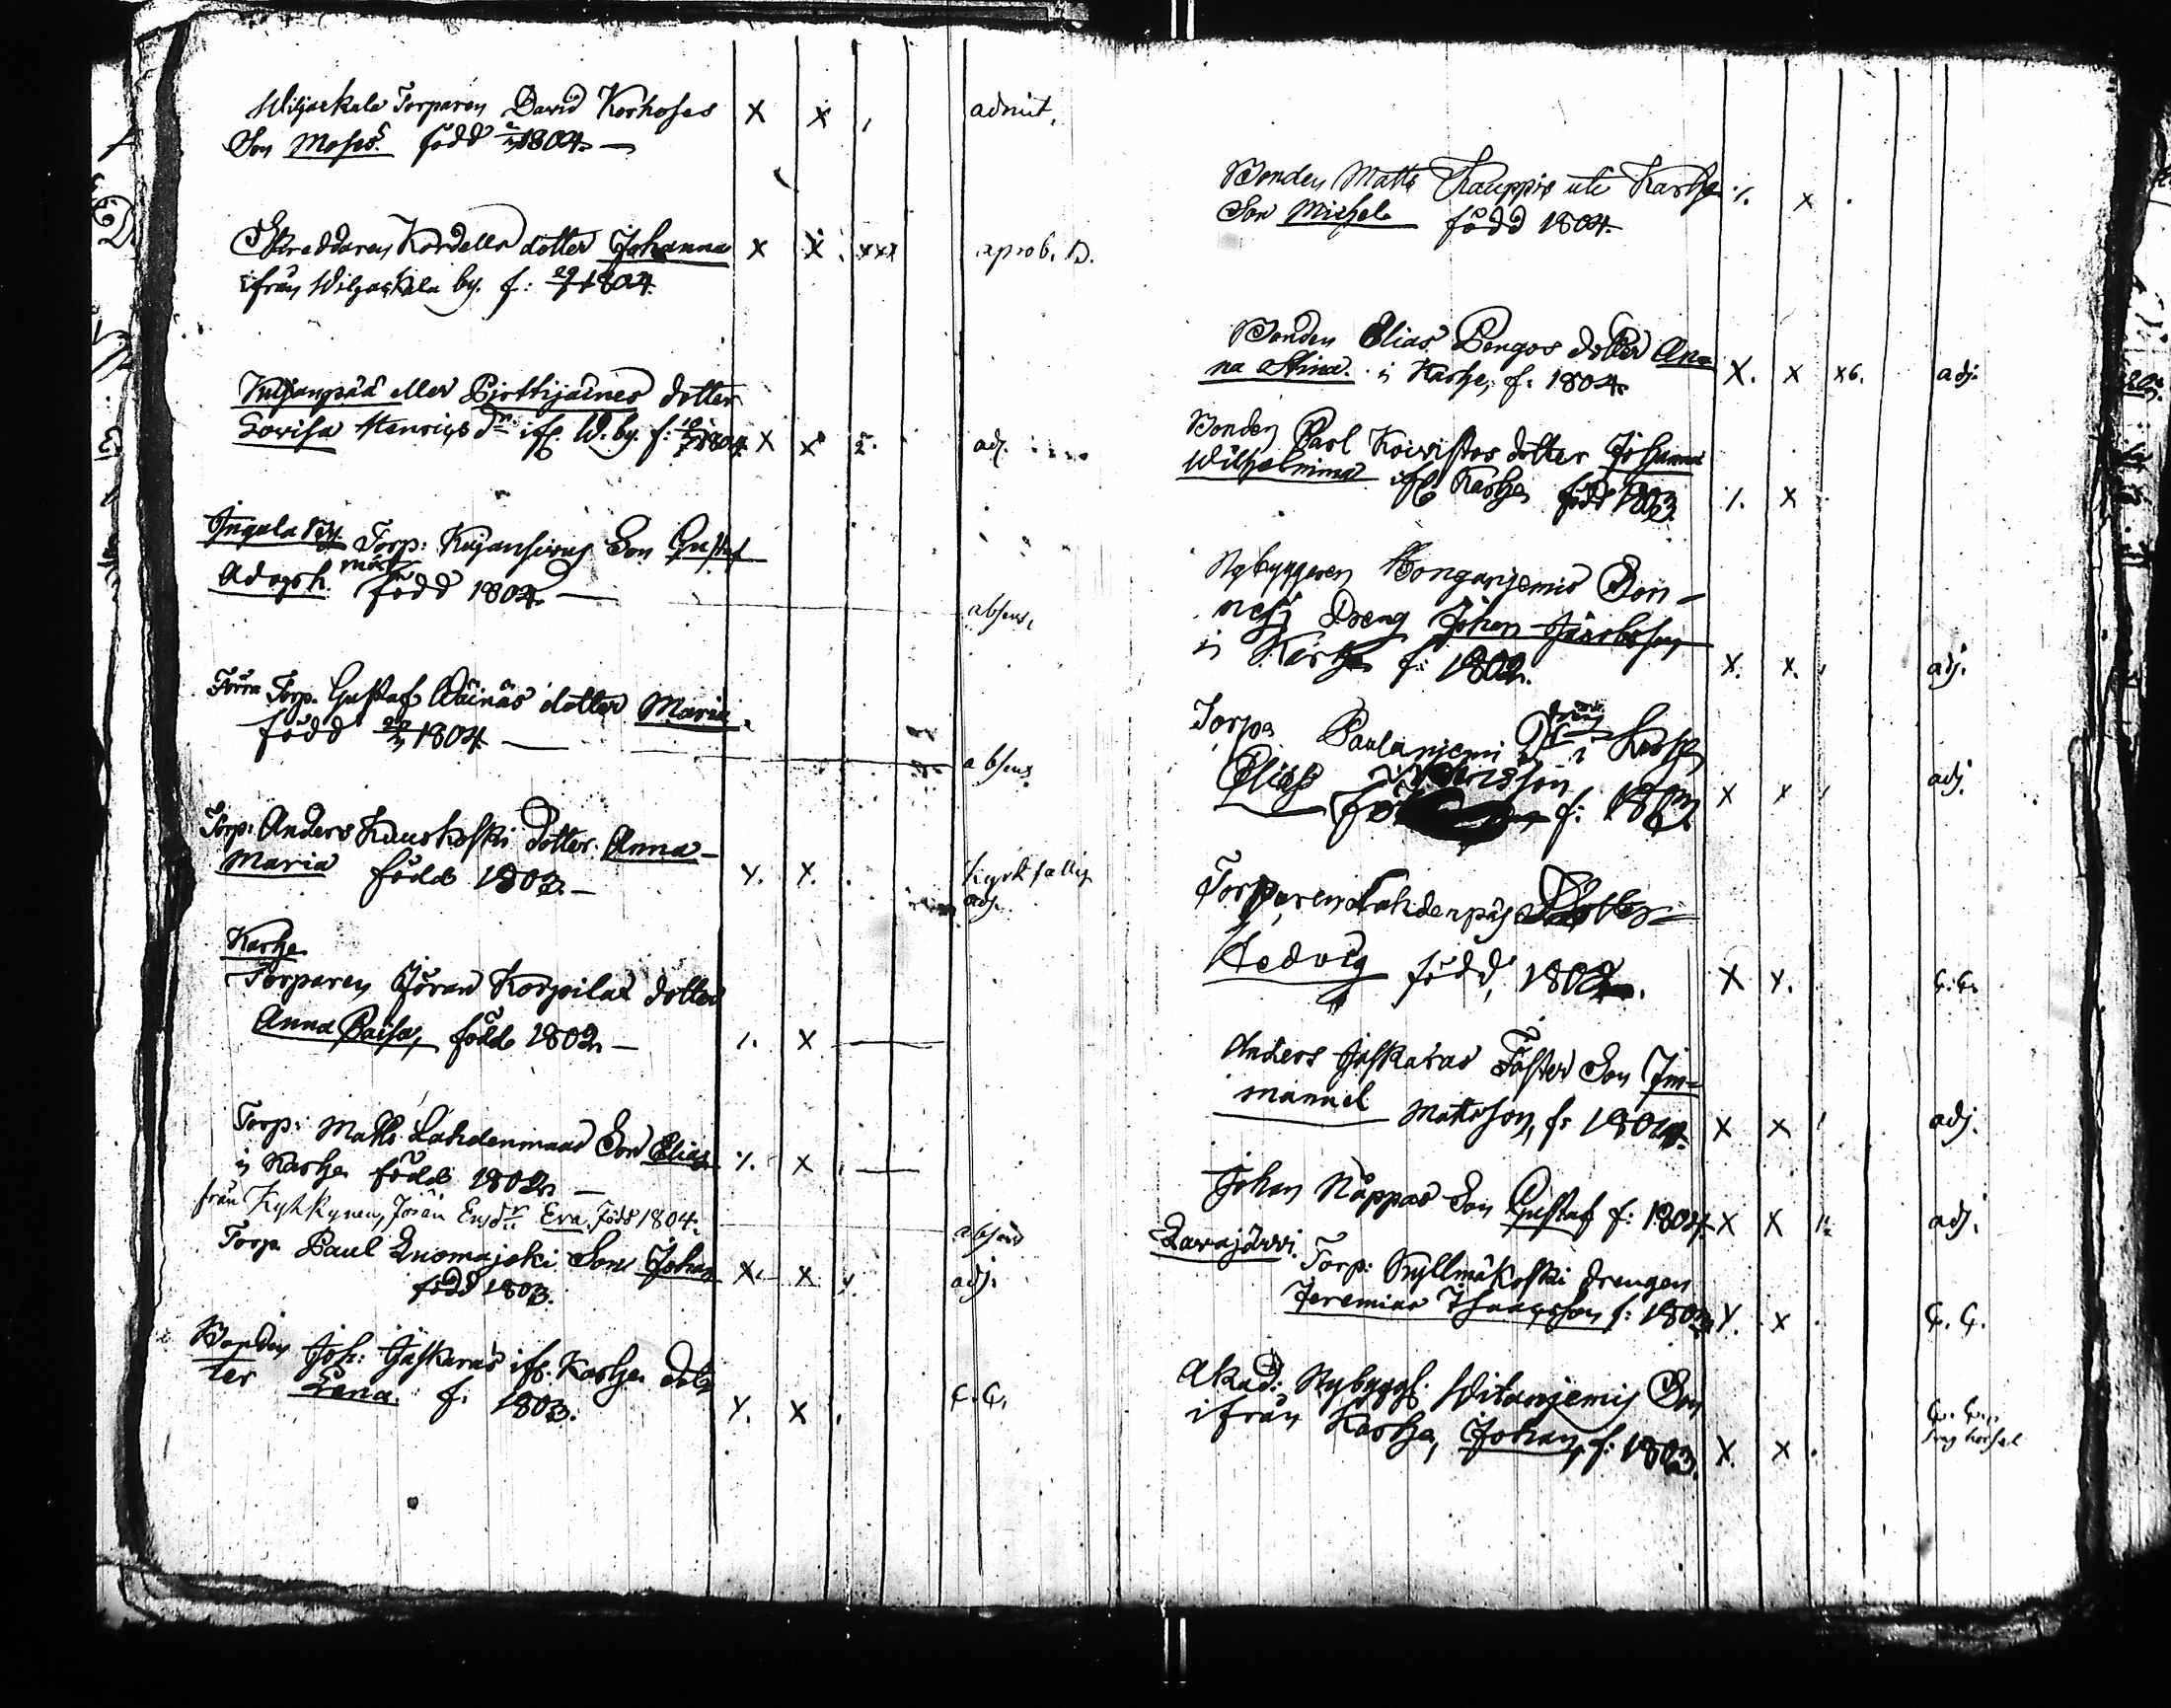 Wiljackala Torparen David Korhoses X X , admit.
Son Moses född 1804. —
Skreddaren Kordells dotter Johanna X X . xxx aprob. D.
ifrån Wiljackala by. f: 29/7 1804.
Kuljunpää eller Pjottijäines dotter
Lovisa Henrics dr ifr. W. by. f: 1804. X X 2. adj.
Ingala By. Torp: Kujansivus Son Gustaf
Adolph. född 1804. — absens,
Törra Torp. Gustaf Wäinäs dotter Maria.
född 1804. — absens
Torp: Anders Kauskoski Dotter. Anna-
Maria född 1803. — X. X. . Kyrkfallig
adj.
Karhe
Torparen Jöran Korpilas dotter
Anna Caisa, född 1802. — X. X
Torp: Matts Lahdenmaas Son Elias X. X
i Karhe född 1802. —
från Kyhkynen, Jöran Ersdr Eva. född 1804. absens
Torp. Paul Luomajoki Son Johan X. X adj.
född 1803.
Bonden Joh: Jäskaras ifr. Karhe dot-
ter Lena. f. 1803. X. X . C. C.
Bonden Matts Kauppis uti Karhe X. X .
Son Michel född 1804.
Bonden Elias Pengos dotter An=
na Stina. i Karhe, f. 1804. X. X x6. adj.
Bonden Carl Koivistos dotter Johanna
Wilhelmina ifr Karhe född 1803. X. X .
Nybyggaren Honganjemis Son-
nens Dreng Johan Jacobsson
i Karhe f: 1802. X. X. , adj.
Torpa Paulanjemi Dreng i Karhe
Elias f: X X , adj.
Torparen Lahdenpäs Dotter
Hedvig född, 1802. X X. C. C.
Anders Jäskaras Foster Son Im=
manuel Mattsson, f: 1804. X X adj.
Johan Näppäs Son Gustaf f: 1804. X X adj.
Lavajärvi. Torp: Kyllmäkoski drengen
Jeremias Isaacsson f: 1803 X. X . C. C.
Akad: Nybygg. Witanjemis Son
ifrån Karhe, Johan, f: 1803. X. X . C. C.